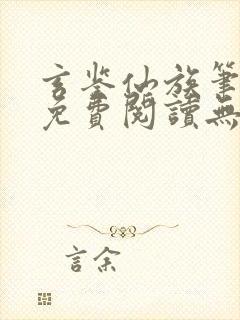 玄鉴仙族筆
免費閱讀無
言余